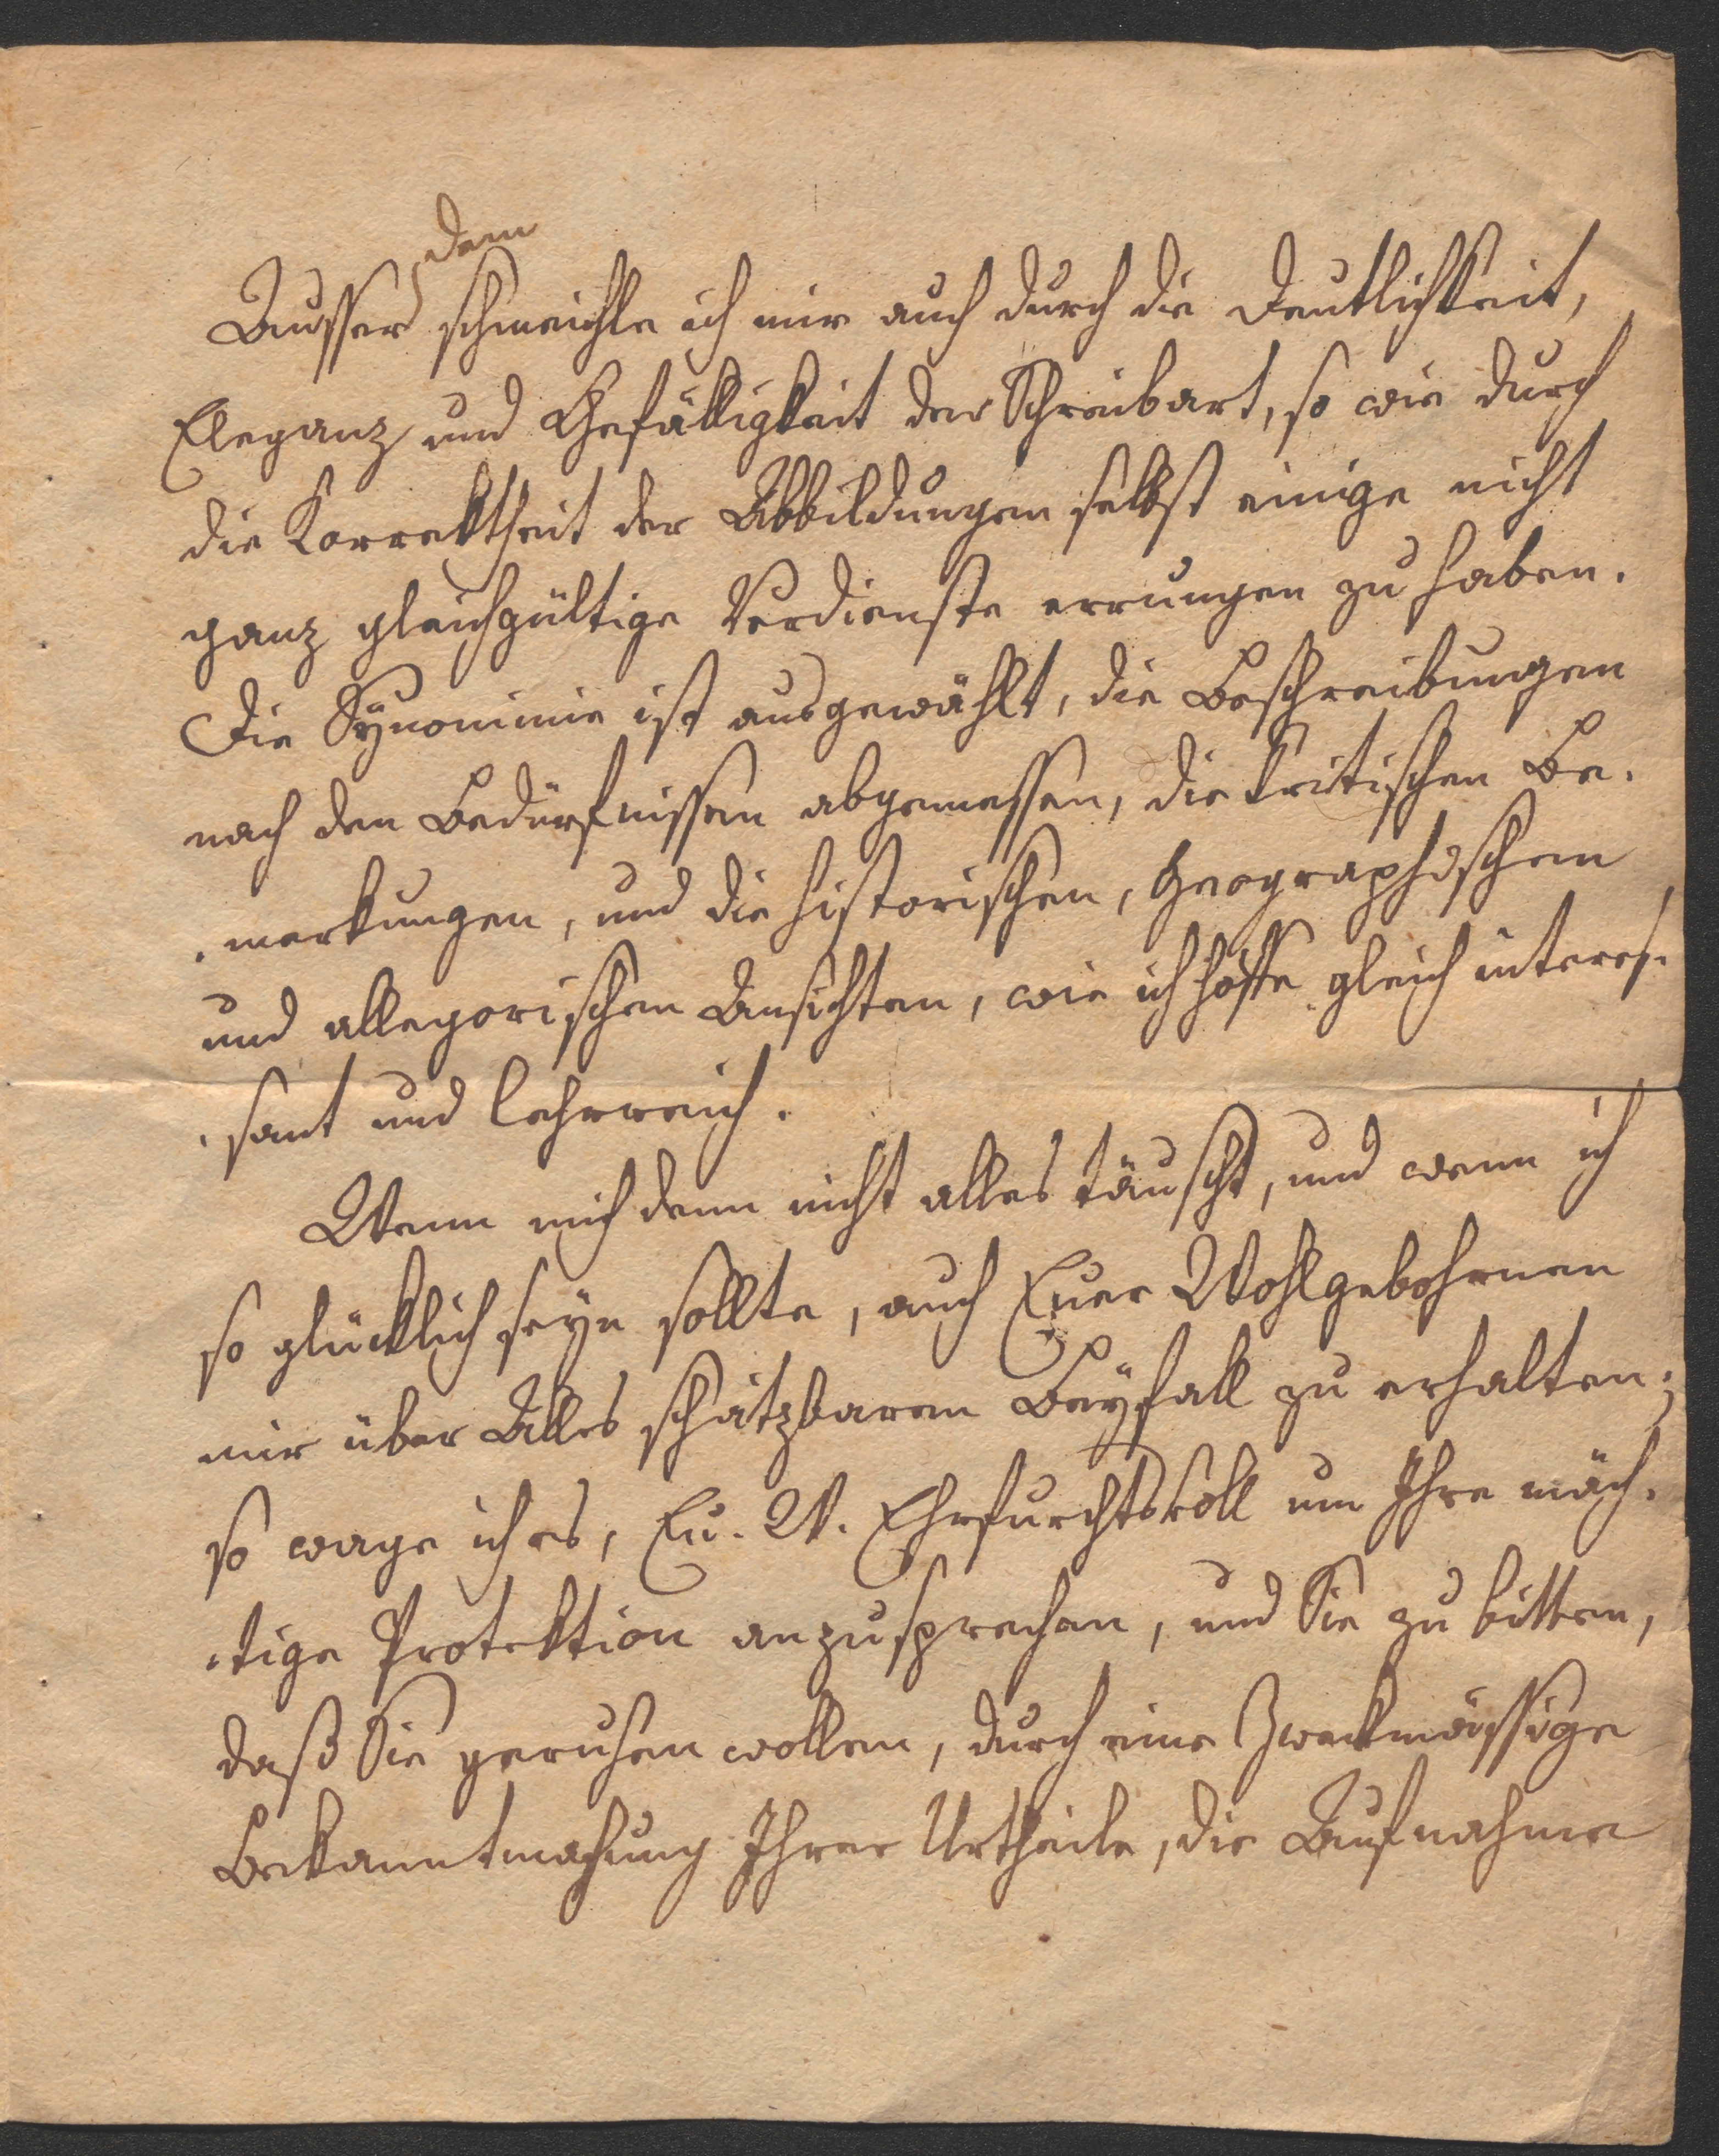 Ausser dem schmeichle ich mir auch durch die Deutlichkeit,
Eleganz und Gefälligkeit der Schreibart, so wie durch
die Korrektheit der Abbildungen selbst einige nicht
ganz gleichgültige Verdienste errungen zu haben.
Die Synonimie ist ausgewählt, die Beschreibungen
nach den Bedürfnissen abgemessen, die kritischen Be-
-merkungen, und die historischen, Geographischen
und allegorischen Ansichten, wie ich hoffe gleich interes-
-sant und lehrreich.
Wenn mich denn nicht alles täuscht, und wenn ich
so glücklich seyn sollte, auch Euer Wohlgebohrnen
mir über Alles schätzbaren Beyfall zu erhalten;
so wage ich es, Eu. W. Ehrfurchtsvoll um Ihre mäch-
-tige Protektion anzusprechen, und Sie zu bitten,
daß Sie geruhen wollen, durch eine Zweckmässige
Bekanntmachung Ihrer Urtheile, die Aufnahme